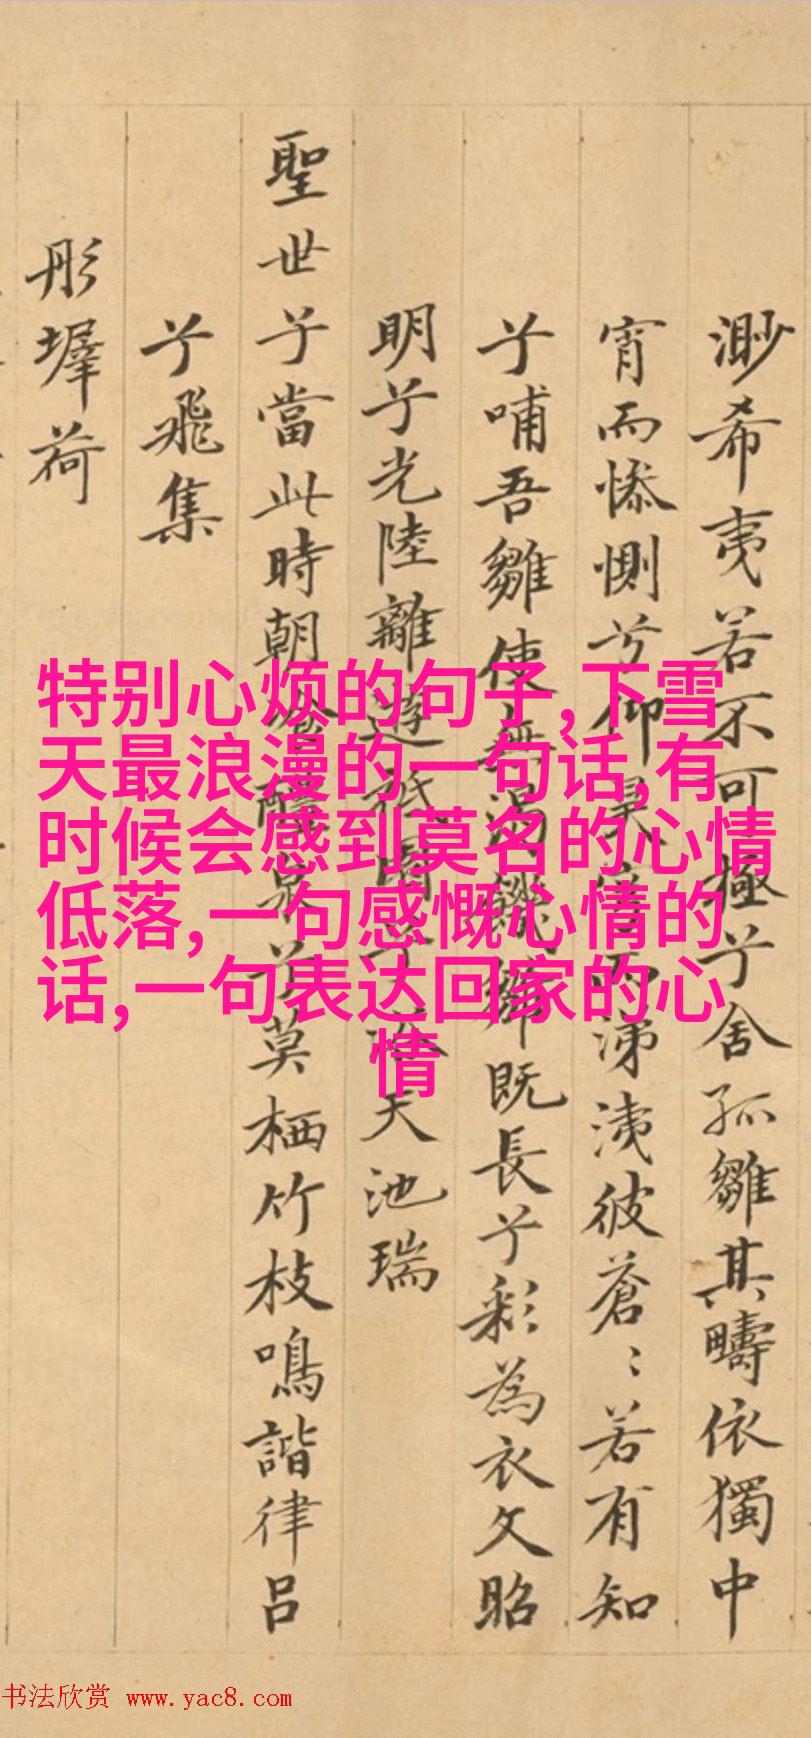 渺希夷若不可極兮舍孤雛其疇依獨中
宵而惨惻兮仰昊而涕洟彼蒼〻若有知
兮哺吾雛使無渴饑雛既長兮彩為衣文昭
明兮光陸離遊祇園兮天池瑞
聖世兮當此時朝醴泉兮莫栖竹枝鳴諧律呂
兮飛集
彤墀荷
特别心烦的句子,下雪
天最浪漫的一句话,有
时候会感到莫名的心情
低落,一句感慨心情的
话,一句表达回家的心
情
书法欣赏 www.yac8.com